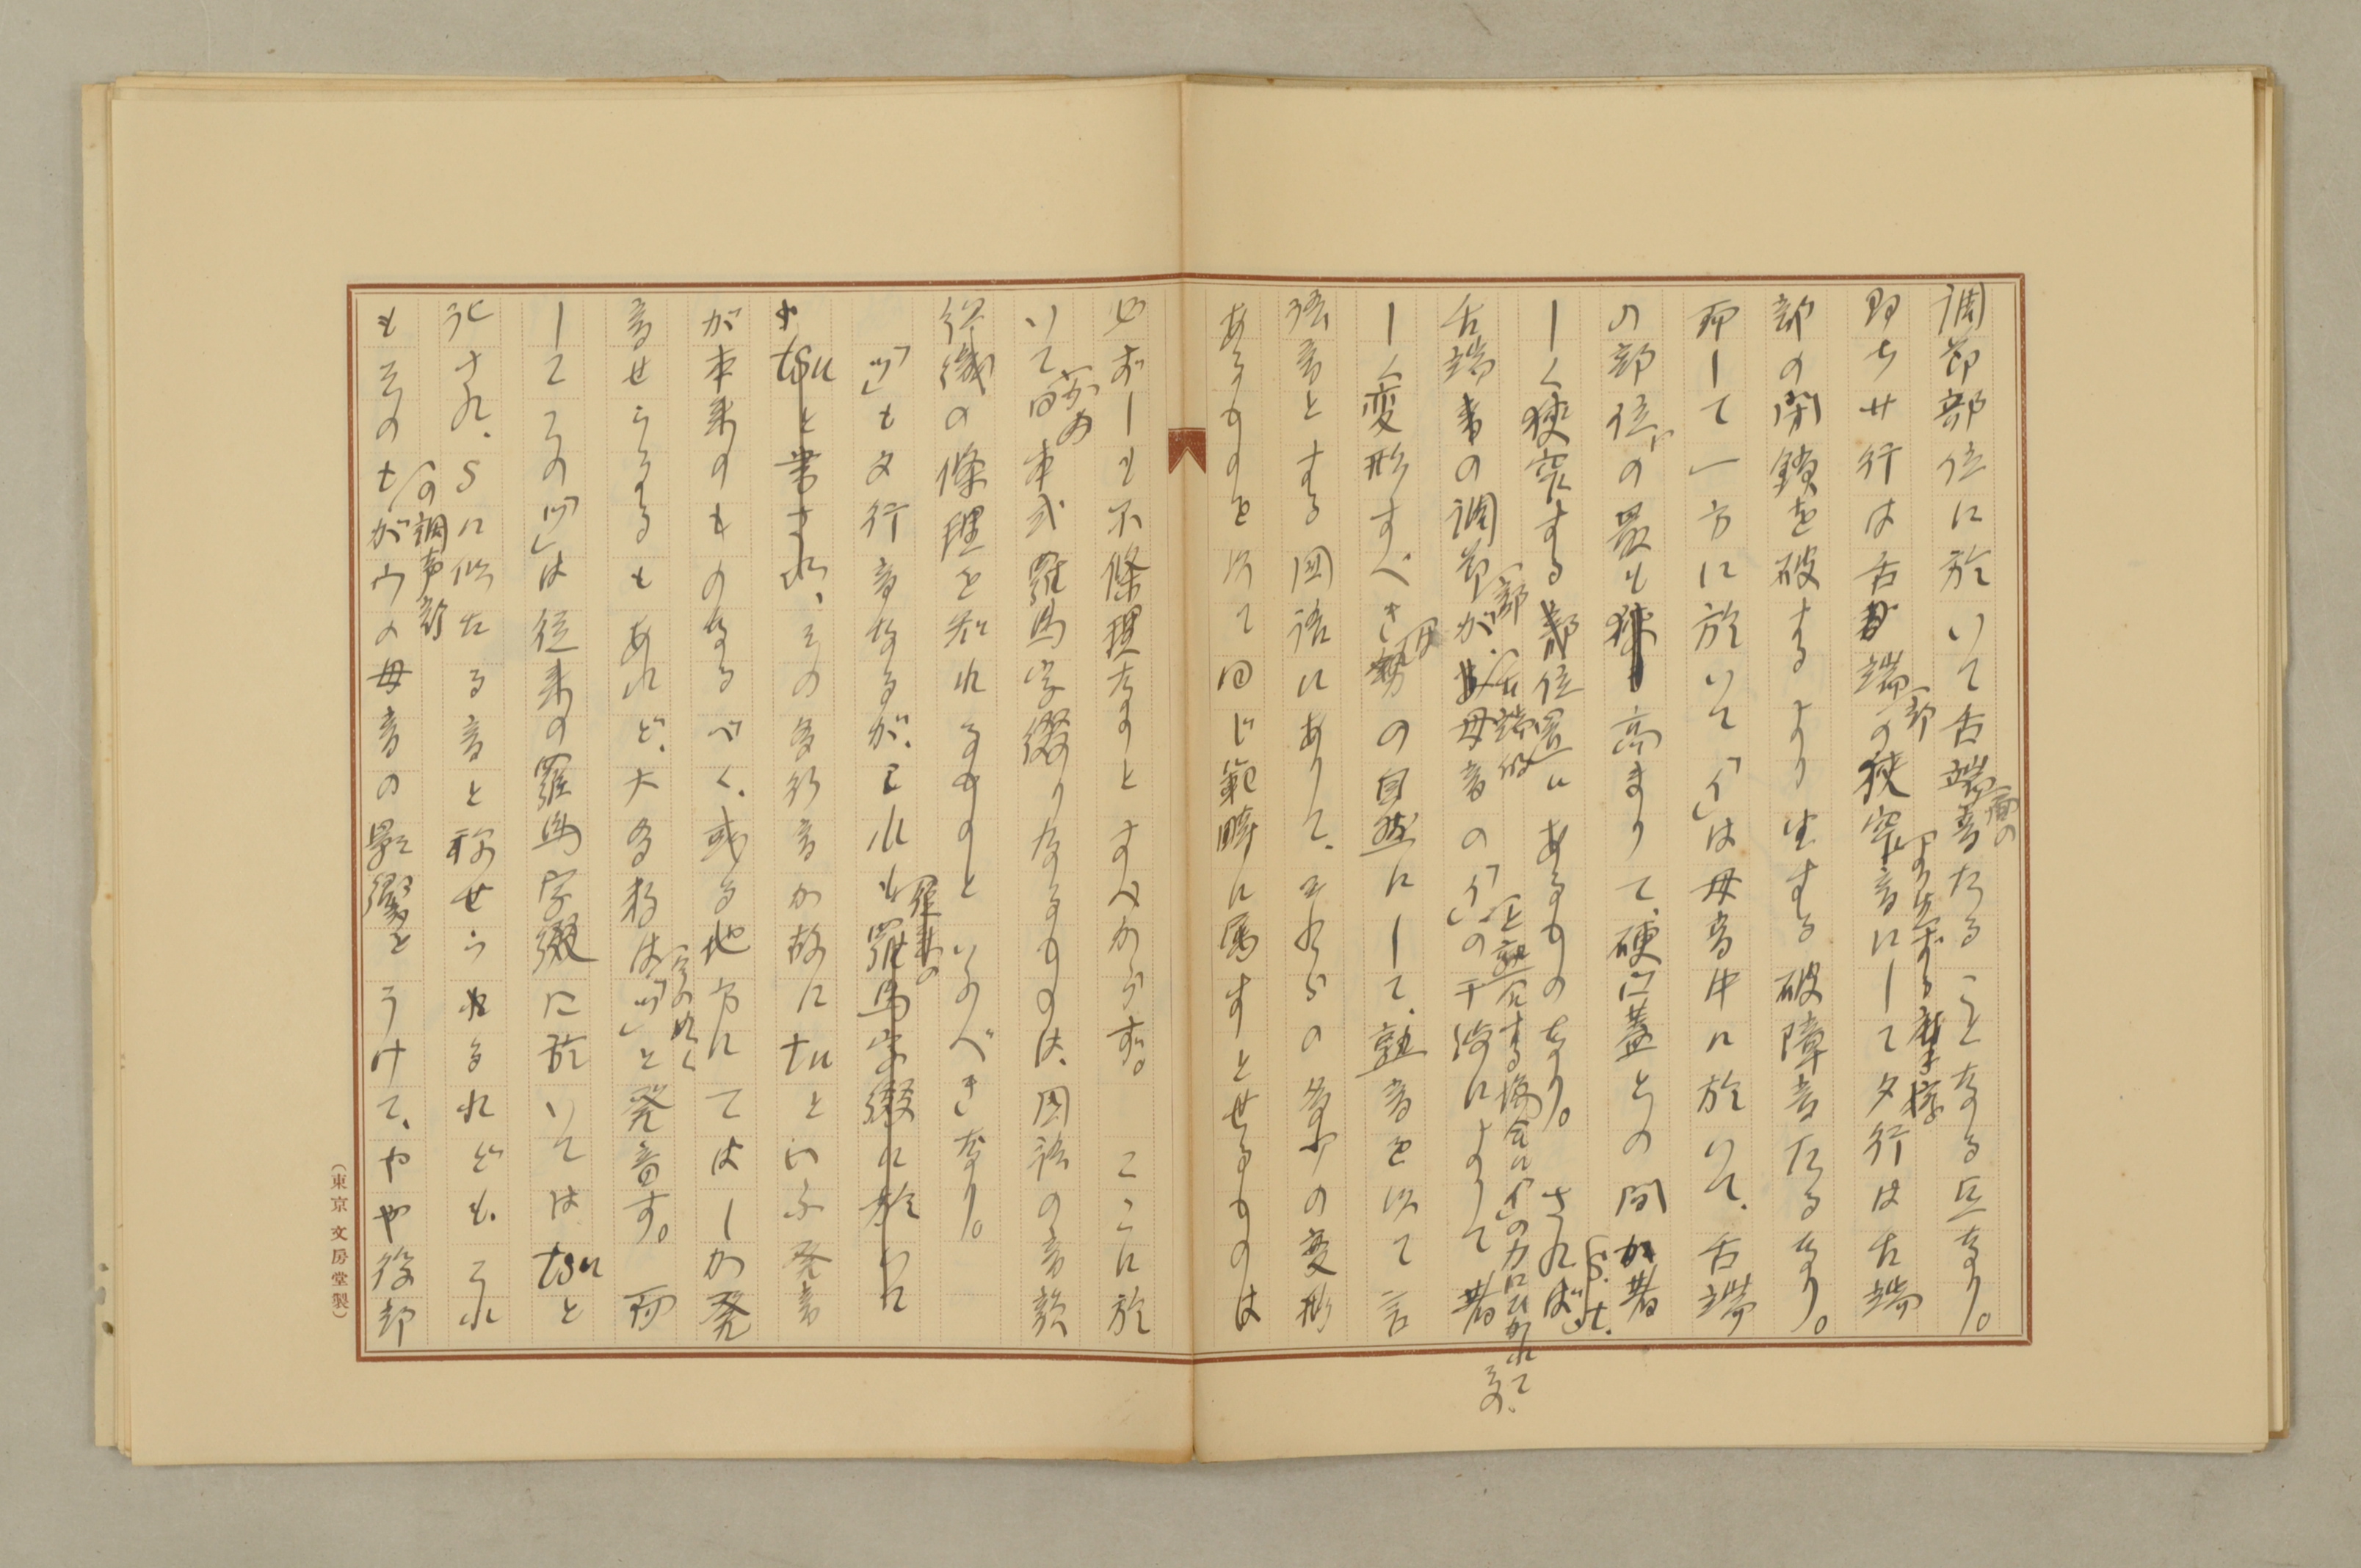 調節部位に於いて舌端音たることなる点なり。
即ちサ行は舌端の狭窄音にしてタ行は舌端
部の閉鎖を破するより生ずる破障音たるなり。
而して一方に於いて「イ」は母音中に於いて、舌端
の部位の最も高まりて、硬口蓋との間が著
しく狭窄する部位にあるものなり。されば
舌端音の調節が、母音の「イ」の干渉によりて著
しく変形すべき勢の自然にして、熟音を以て言
語音とする国語にありて、それらの多少の変形
あるものを以て同じ範疇に属すとせるものは
必ずしも不條理なりとすべからず。ここに於
いて日本式羅馬字綴りなるものは、国語の音韻
組織の條理を知れるものといふべきなり。
「ツ」もタ行音なるが、これも羅馬字綴に於いて
tsuと書され、その多行音か故にtuといふ発音
が本来のものなるべく、或る地方にてはしか発
音せらるるもあれど、大多数は「ツ」と発音す。而
してこの「ツ」は従来の羅馬字綴に於いてはtsuと
記され、sに似たる音と称せらるれども、これ
もそのtがウの母音の影響をうけて、やや後部
の調声部
（東京 文房堂製）